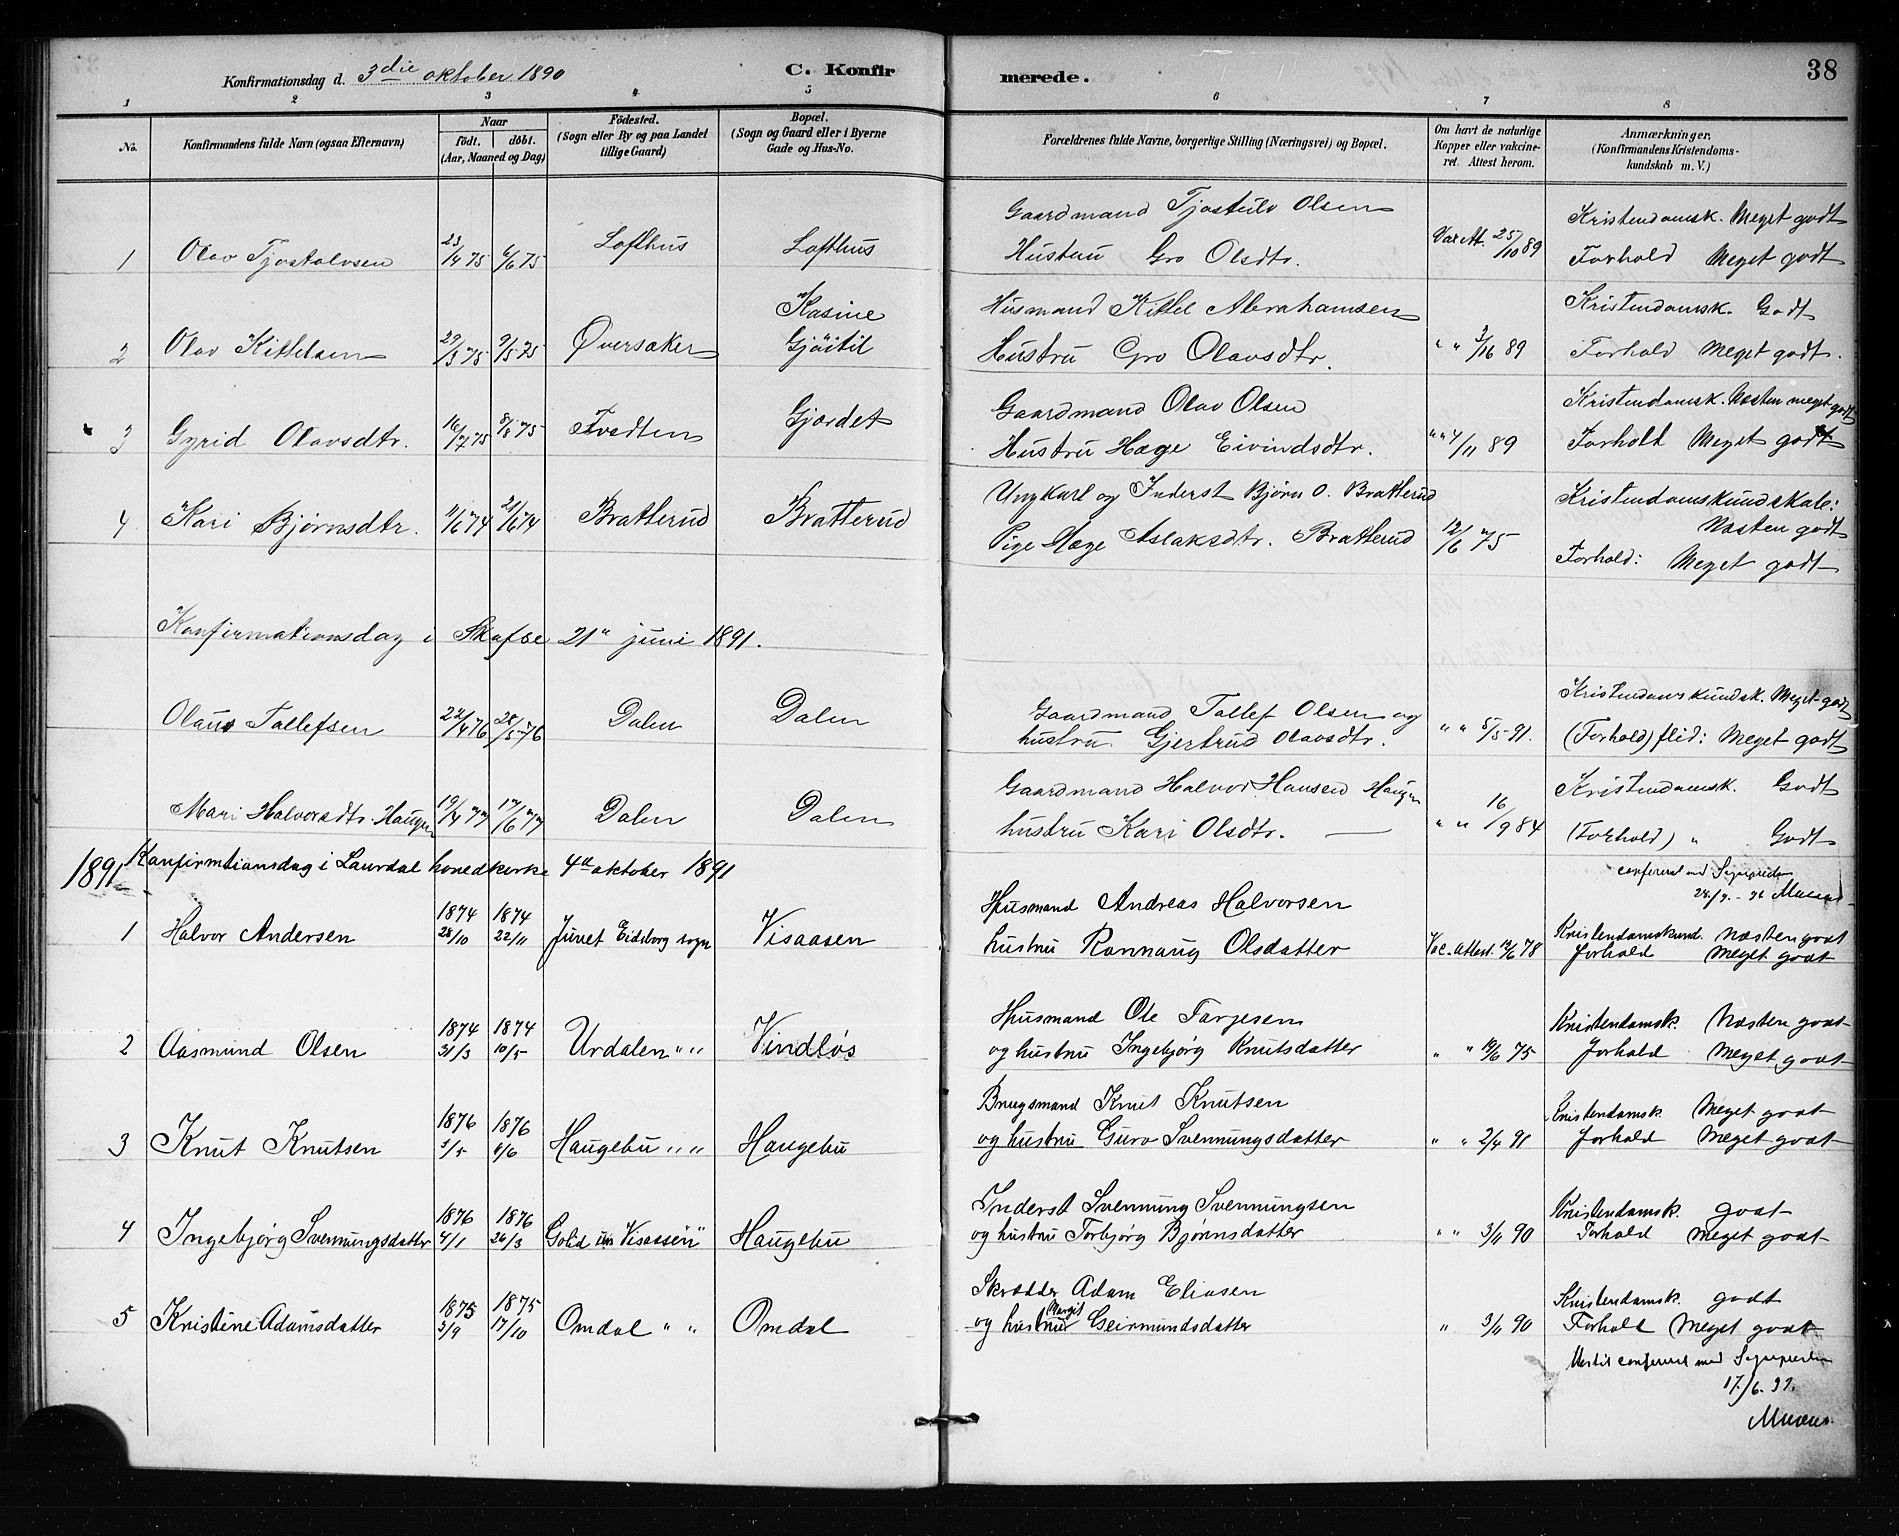 Konfirmationsdag d. 3die oktober 1890 C. Konfirmerede. 38
1 2 3 4 5 6 7 8
No. Konfirmandens fulde Navn (ogsaa Efternavn) Naar født. døbt. (Aar, Maaned og Dag) Fødested. (Sogn eller By og paa Landet tillige Gaard) Bopæl. (Sogn og Gaard eller i Byerne Gade og Hus-No. Forældrenes fulde Navne, borgerlige Stilling (Næringsvei) og Bopæl. Om havt de naturlige Kopper eller vakcineret. Attest herom. Anmærkninger. (Konfirmandens Kristendomskundskab m. V.)
Gaardmand Tjostulv Olsen Kristendomsk. Meget godt
1 Olav Tjostolvsen 23/4 75 6/6 75 Lofthus Lofthus Hustru Gro Olsdtr. Vac At. 25/10 89 Forhold Meget godt
Kasine Husmand Kittel Abrahamsen Kristendomsk. Godt
2 Olav Kittelsen 29/3 75 9/5 75 Øversaker Gjøitil Hustru Gro Olavsdtr. " " 89 Forhold Meget godt.
Gaardmand Olav Olsen Kristendomsk. Næsten meget godt
3 Gyrid Olavsdtr. 16/7 75 8/8 75 Tvedten Gjærdet Hustru Hæge Eivindsdtr. " " 4/11 89 Forhold Meget godt
Ungkarl og Inderst Bjørn O. Bratterud Kristendomskundskab: Næsten godt
4 Kari Bjørnsdtr. 11/6 74 21/6 74 Bratterud Bratterud Pige Hæge Aslaksdtr. Bratterud 12/6 75 Forhold: Meget godt
Konfirmationsdag i Skafse 21" juni 1891.
Gaardmand Tallef Olsen og Kristendomskundsk. Meget godt
Olaus Tallefsen 22/4 76 28/5 76 Dalen Dalen hustru Gjertrud Olavsdtr. " " 5/5 91. (Forhold) flid: Meget godt
Gaardmand Halvor Hansen Haugen Kristendomsk. Godt
Mari Halvorsdtr. Haugen 19/4 77 17/6 77 Dalen Dalen hustru Kari Olsdtr. — " " 16/9 84 (Forhold) " Godt
1891 Konfirmtionsdag i Laurdal hovedkirke 4de oktober 1891 confereret med
Husmand Andreas Halvorsen
1 Halvor Andersen 1874 28/10 1874 22/11 Juvet Eidsborg sogn Visaasen hustru Rannaug Olsdatter Vac. attest. 78 Kristendomskund. Næsten godt Forhold Meget godt
Husmand Ole Tarjesen Kristendomsk. Næsten godt
2 Aasmund Olsen 1874 31/3 1874 10/5 Urdalen " " Vindløs og hustru Ingebjørg Knutsdatter " " 75 Forhold Meget godt
Brugsmand Knut Knutsen Kristendomsk. Meget godt
3 Knut Knutsen 1876 1876 Haugebu " " Haugebu og hustru Guro Svennungsdatter " " 2/4 91 Forhold Meget godt
Inderst Svennung Svennungsen Kristendomsk. godt
4 Ingebjørg Svennungsdatter 1876 4/1 1876 26/3 Visaasen " " Haugebu og hustru Torbjørg Bjørnsdatter " " 3/11 90 Forhold Meget godt
Skrædder Adam Eliasen Kristendomsk. godt
5 Kristine Adamsdatter 1875 1875 17/10 Omdal " " Omdal og hustru Margit Geirmundsdatter " 3/11 90 Forhold Meget godt
confereret med